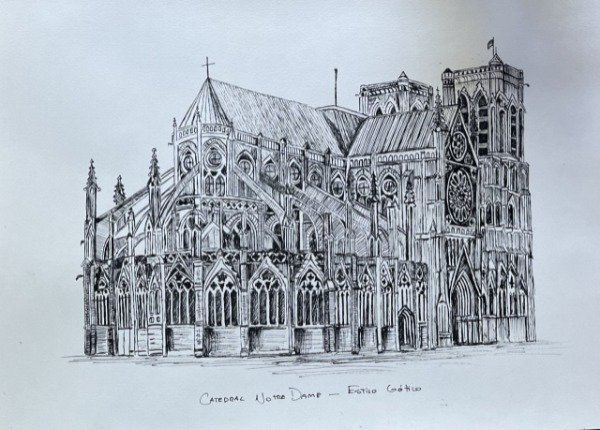 Catedral Notre Dame – Estilo Gótico